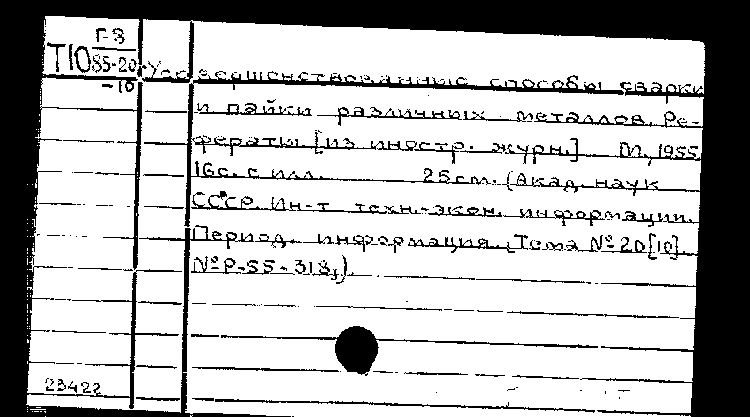 Г-8
Т10 85-20
-10
Усовершенствованные способы сварки
и пайки различных металлов. Ре-
фераты [из иностр. журн.] М., 1955
16с. с илл. 25см. (Акад. наук
СССР. Ин-т техн.-экон. информации.
Период. информация. Тема № 20[10].
№ Р-55-313,).
23422